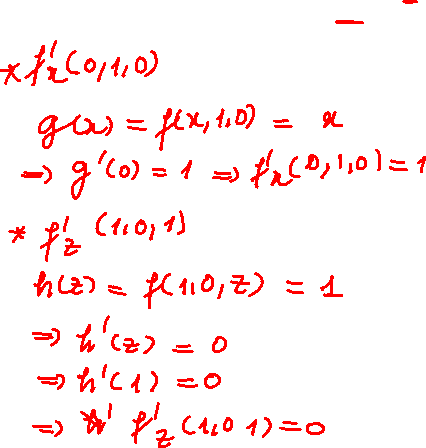 * f'x(0,1,0)
g(x) = f(x,1,0) = x
⇒ g'(0) = 1 ⇒ f'x(0,1,0) = 1
* f'z (1,0,1)
h(z) = f(1,0,z) = 1
⇒ h'(z) = 0
⇒ h'(1) = 0
⇒ f'z(1,0 1) = 0